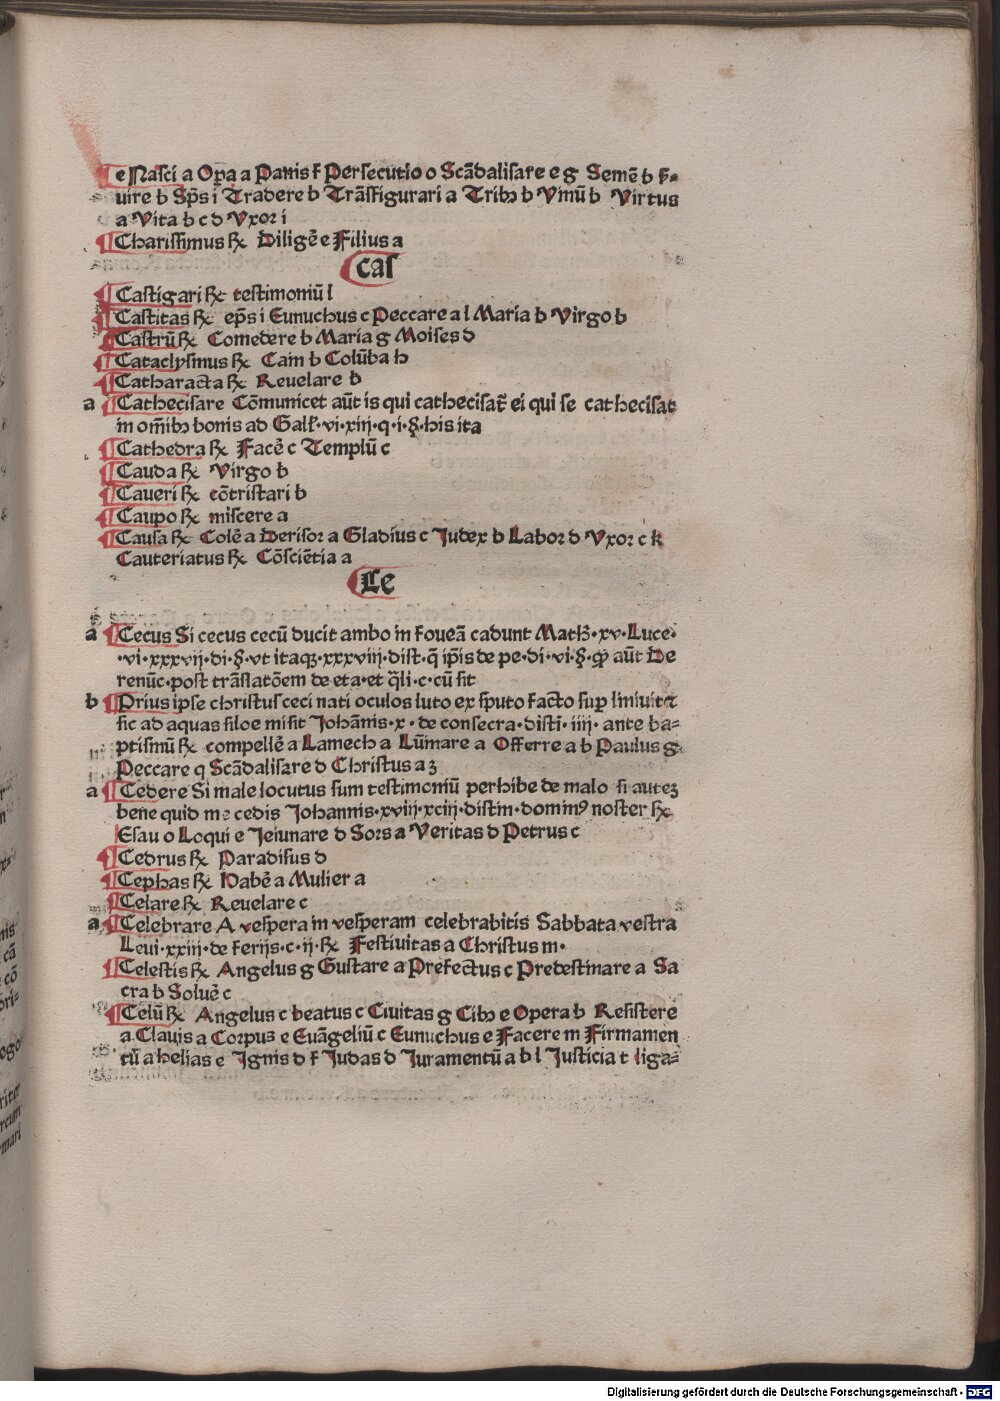 e Nasci a Opa a Panis f Persecutio o Scādalisare e g Semē b s-
uire b Sp̄s i Tradere b Trāsfigurari a Tribꝫ b Vinū b Virtus
a Vita b c d Vxor i
Charissimus ℞ Diligē e Filius a
cas
Castigari ℞ testimoniū l
Castitas ℞ ep̄s i Eunuchus c Peccare a l Maria b Virgo b
Castrū ℞ Comedere b Maria g Moises d
Cataclysmus ℞ Cain b Colūba h
Catharacta ℞ Reuelare b
a Cathecisare Cōmunicet aūt is qui cathecisat̄ ei qui se cathecisat
in om̄ibꝫ bonis ad Gall'·vi·xiij·q·i·§·his ita
Cathedra ℞ Facē c Templū c
Cauda ℞ Virgo b
Caueri ℞ cōtristari b
Caupo ℞ miscere a
Causa ℞ Colē a Derisor a Gladius c Judex b Labor d Vxor c k
Cauteriatus ℞ Cōsciētia a
Ce
a Cecus Si cecus cecū ducit ambo in foueā cadunt Math·xv·Luce·
·vi·xxxvij·di·§·vt itaqꝫ·xxxviij·dist·q̄ ip̄is de pe·di·vi·§·qꝫ aūt De
renūc·post trāslatōem de eta·et q̄li·c·cū sit
b Prius ipse christus ceci nati oculos luto ex sputo facto sup liniuit ⁊
sic ad aquas siloe misit Johānis·x·de consecra·disti·iiij·ante ba=
ptismū ℞ compellē a Lamech a Lūinare a Offerre a b Paulus g
Peccare q Scādalisare d Christus a z
a Cedere Si male locutus sum testimoniū perhibe de malo si autez
bene quid me cedis Johannis·xviij·xciij·distin·dominꝰ noster ℞
Esau o Loqui e Jeiunare d Sors a Veritas d Petrus c
Cedrus ℞ Paradisus d
Cephas ℞ Habē a Mulier a
Celare ℞ Reuelare c
a Celebrare A vespera in vesperam celebrabitis Sabbata vestra
Leui·xxiij·de ferijs·c·ij·℞ Festiuitas a Christus m·
Celestis ℞ Angelus g Gustare a Prefectus c Predestinare a Sa
cra b Soluē c
Celū ℞ Angelus c beatus c Ciuitas g Cibꝫ e Opera b Resistere
a Clauis a Corpus e Euāgeliū c Eunuchus e Facere m Firmamen
tū a helias e Ignis d f Judas d Juramentū a b l Justicia t liga=
Digitalisierung gefördert durch die Deutsche Forschungsgemeinschaft - DFG